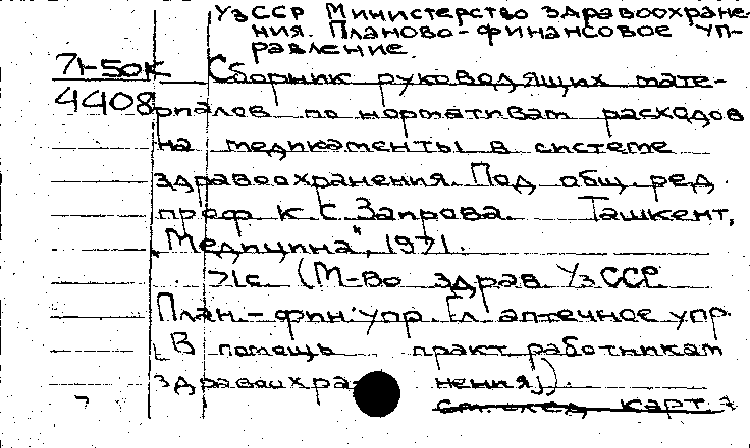 УзССР Министерство здравоохране-
ния. Планово-финансовое уп-
равление.
71-50к Сборник руководящих мате-
4408 риалов по нормативам расходов
на медикаменты в системе
здравоохранения. Под общ. ред.
проф. К.С. Заирова. Ташкент,
"Медицина", 1971.
71с. (М-во здрав. УзССР.
План.-фин. упр. Гл. аптечное упр.
[В помощь практ. работникам
здравоохранения]).
см. след. карт.